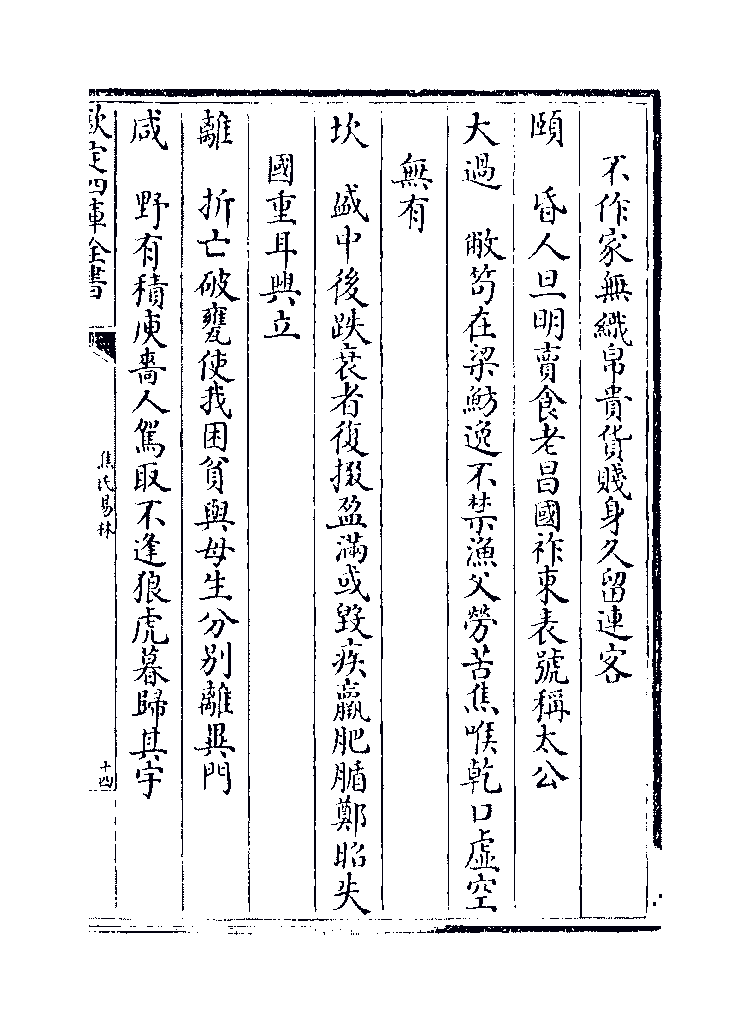 不作家無織帛貴貨賤身久留連客
頤　昏人旦明賣食老昌國祚東表號稱太公
大過　敝笱在梁魴逸不禁漁父勞苦焦喉乾口虛空
無有
坎　盛中後跌衰者復掇盈滿或毀疾羸肥腯鄭昭失
國重耳興立
離　折亡破甕使我困貧與母生分別離異門
咸　野有積庾嗇人駕取不逢狼虎暮歸其宇
欽定四庫全書
焦氏易林
十四